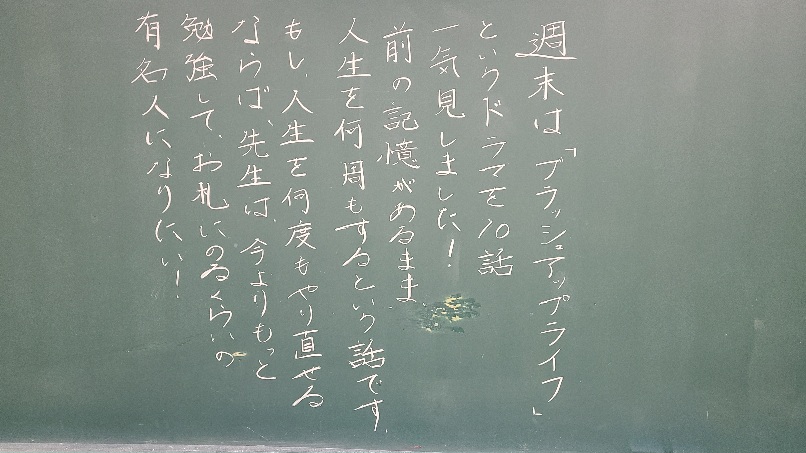 週末は「ブラッシュアップライフ」
というドラマを10話
一気見しました!
前の記憶があるまま
人生を何周もするという話です。
もし、人生を何度もやり直せる
ならば、先生は、今よりもっと
勉強して、お札にのるくらいの
有名人になりたい!